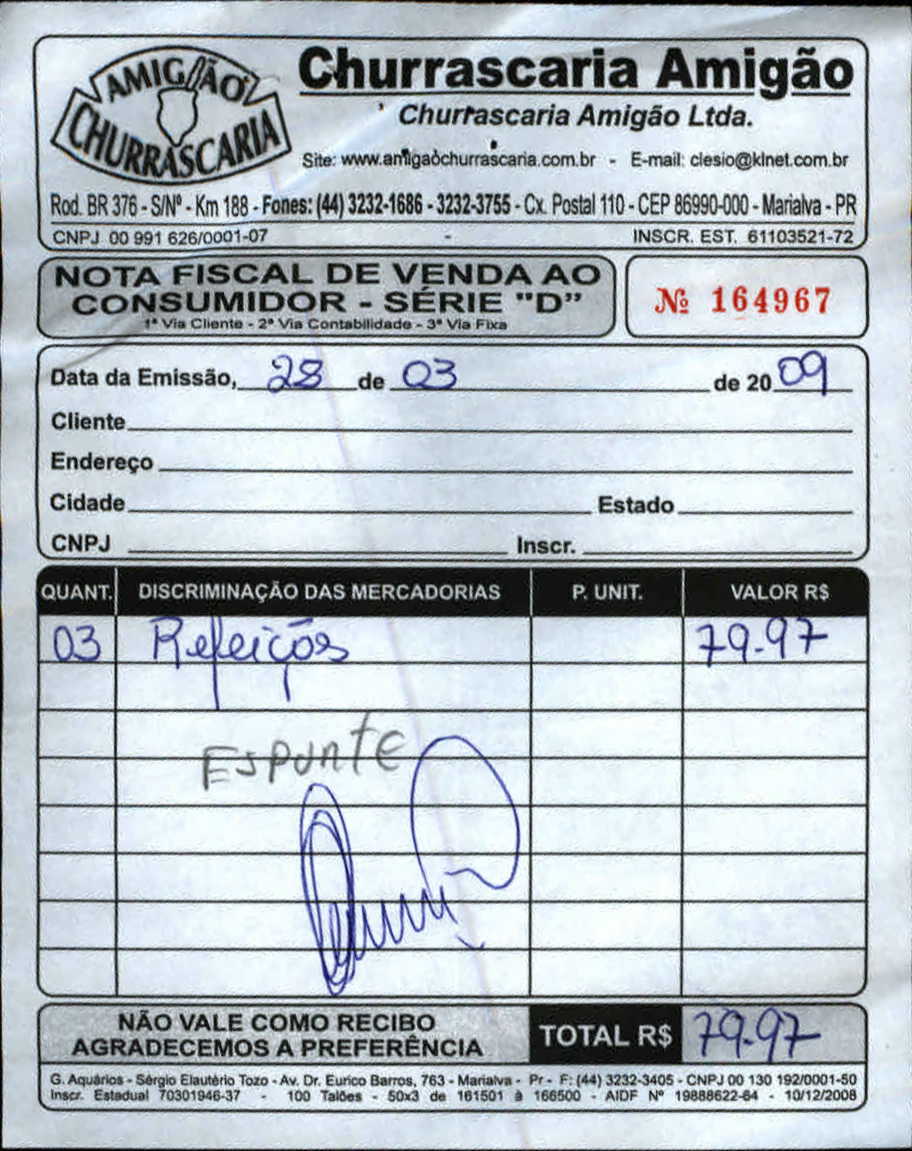 AMIGÃO
CHURRASCARIA
Churrascaria Amigão
Churrascaria Amigão Ltda.
Site: www.amigaochurrascaria.com.br - E-mail: clesio@klnet.com.br
Rod. BR 376 - S/Nº - Km 188 - Fones: (44) 3232-1686 - 3232-3755 - Cx. Postal 110 - CEP 86990-000 - Marialva - PR
CNPJ 00 991 626/0001-07 - INSCR. EST. 61103521-72
NOTA FISCAL DE VENDA AO
CONSUMIDOR - SÉRIE "D"
1ª Via Cliente - 2ª Via Contabilidade - 3ª Via Fixa
Nº 164967
Data da Emissão, 28 de 03 de 2009
Cliente
Endereço
Cidade Estado
CNPJ Inscr.
QUANT. DISCRIMINAÇÃO DAS MERCADORIAS P. UNIT. VALOR R$
03 Refeições 79.97
Espunte
NÃO VALE COMO RECIBO
AGRADECEMOS A PREFERÊNCIA
TOTAL R$ 79.97
G. Aquários - Sérgio Elautério Tozo - Av. Dr. Eurico Barros, 763 - Marialva - Pr - F: (44) 3232-3405 - CNPJ 00 130 192/0001-50
Inscr. Estadual 70301946-37 - 100 Talões - 50x3 de 161501 à 166500 - AIDF Nº 19888622-64 - 10/12/2008